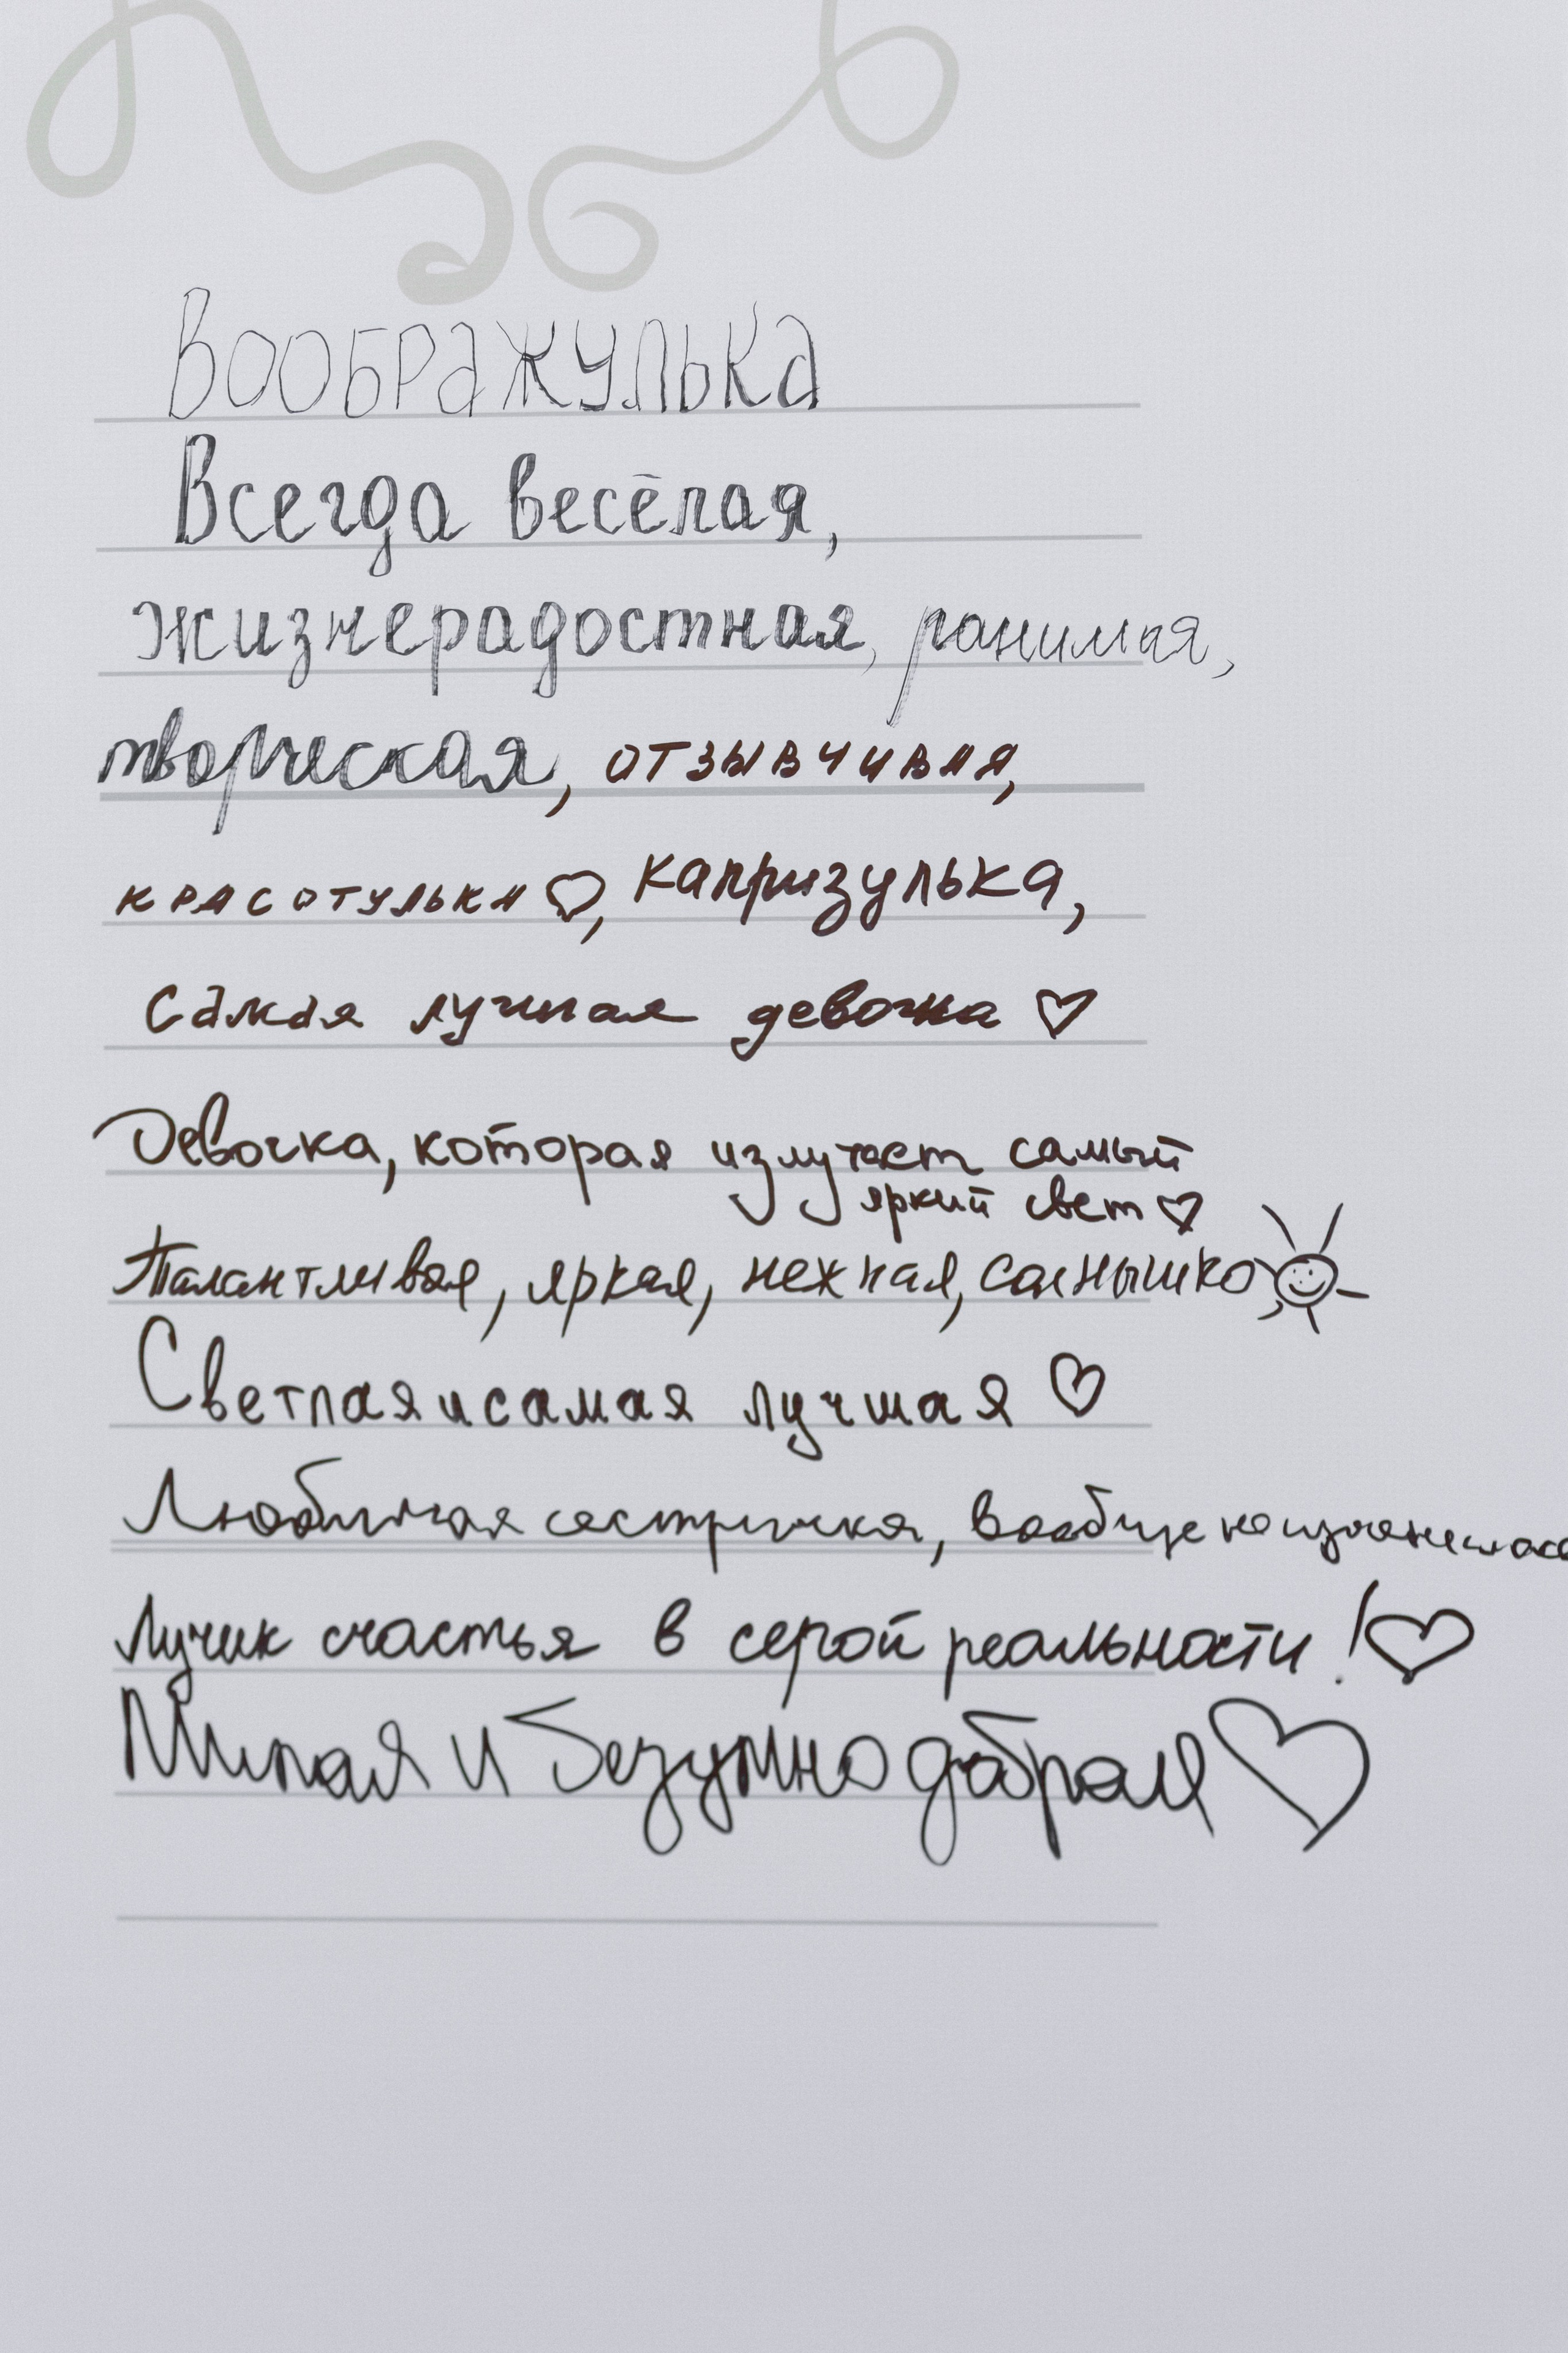 Воображулька
Всегда весёлая,
жизнерадостная, ранимая,
творческая, отзывчивая,
красотулька♡, капризулька,
Самая лучшая девочка ♡
Девочка, которая излучает самый
яркий свет ♡
Талантливая, яркая, нежная, солнышко,
Светлая и самая лучшая ♡
Любимая сестричка, вообще не изменилась
Лучик счастья в серой реальности!♡
Милая и безумно добрая♡